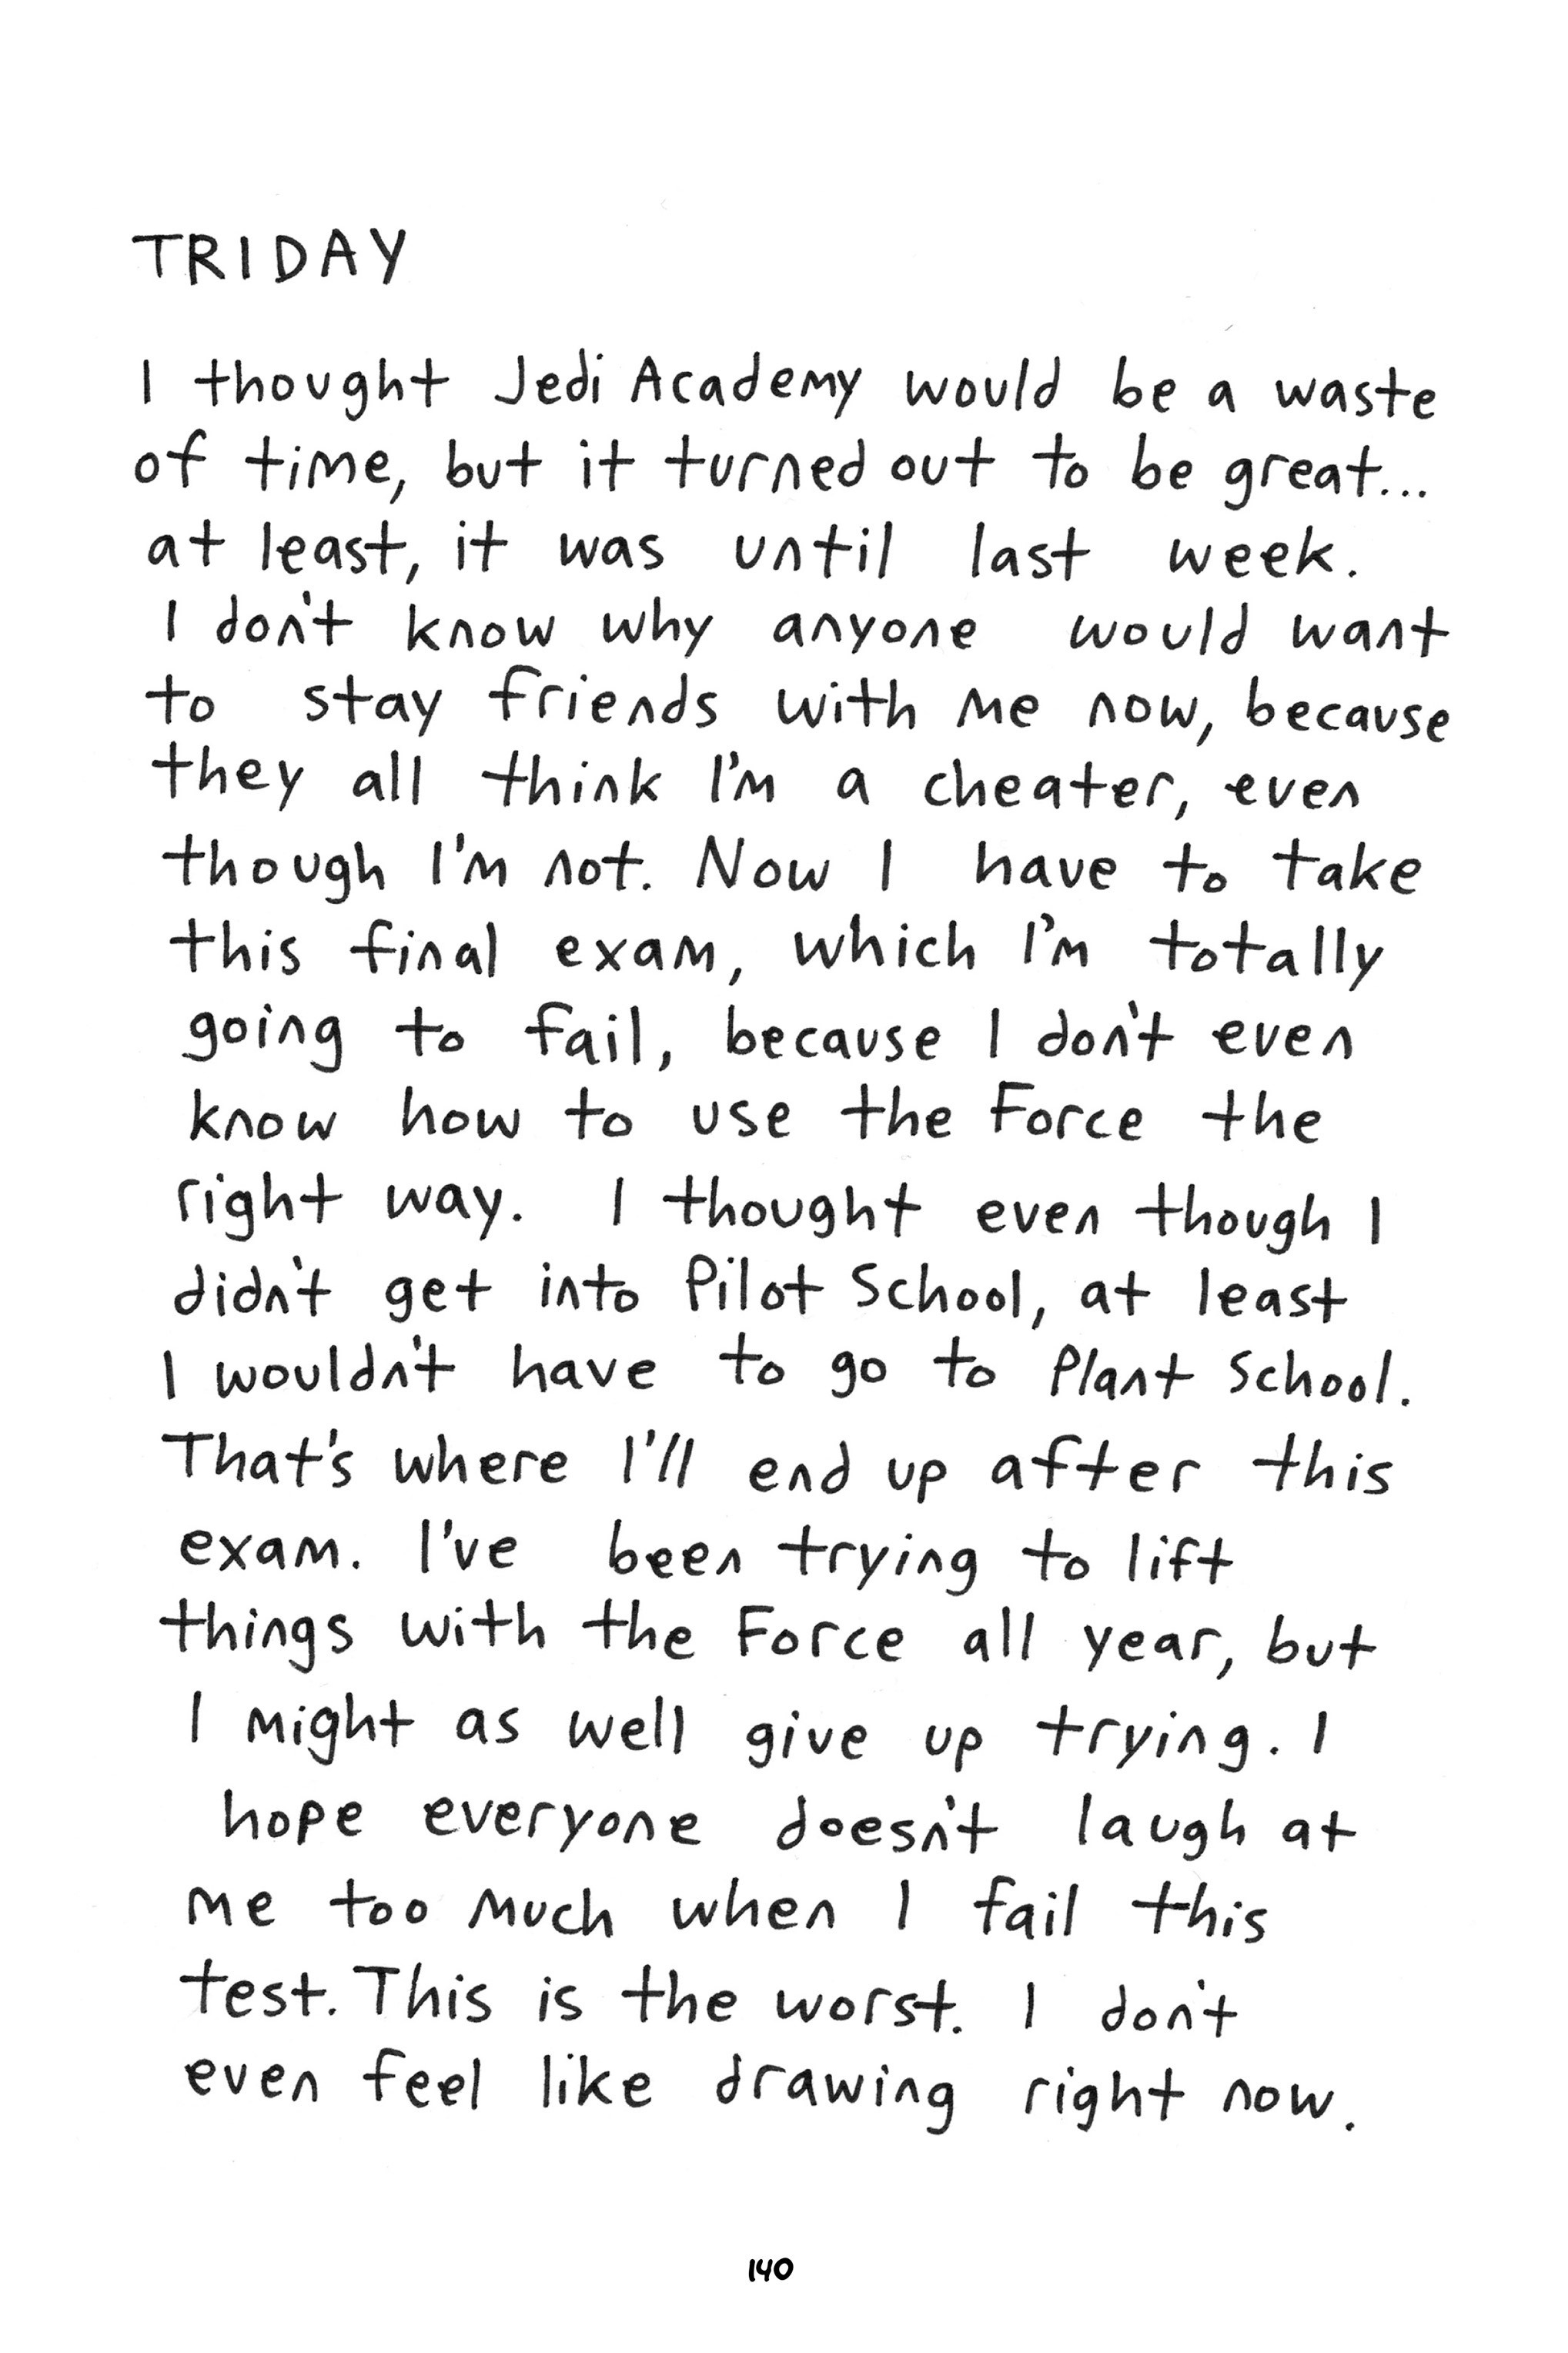 TRIDAY
I thought Jedi Academy would be a waste
of time, but it turned out to be great...
at least, it was until last week.
I don't know why anyone would want
to stay friends with me now, because
they all think I'm a cheater, even
though I'm not. Now I have to take
this final exam, which I'm totally
going to fail, because I don't even
know how to use the Force the
right way. I thought even though I
didn't get into Pilot School, at least
I wouldn't have to go to Plant School.
That's where I'll end up after this
exam. I've been trying to lift
things with the Force all year, but
I might as well give up trying. I
hope everyone doesn't laugh at
me too much when I fail this
test. This is the worst. I don't
even feel like drawing right now.
140